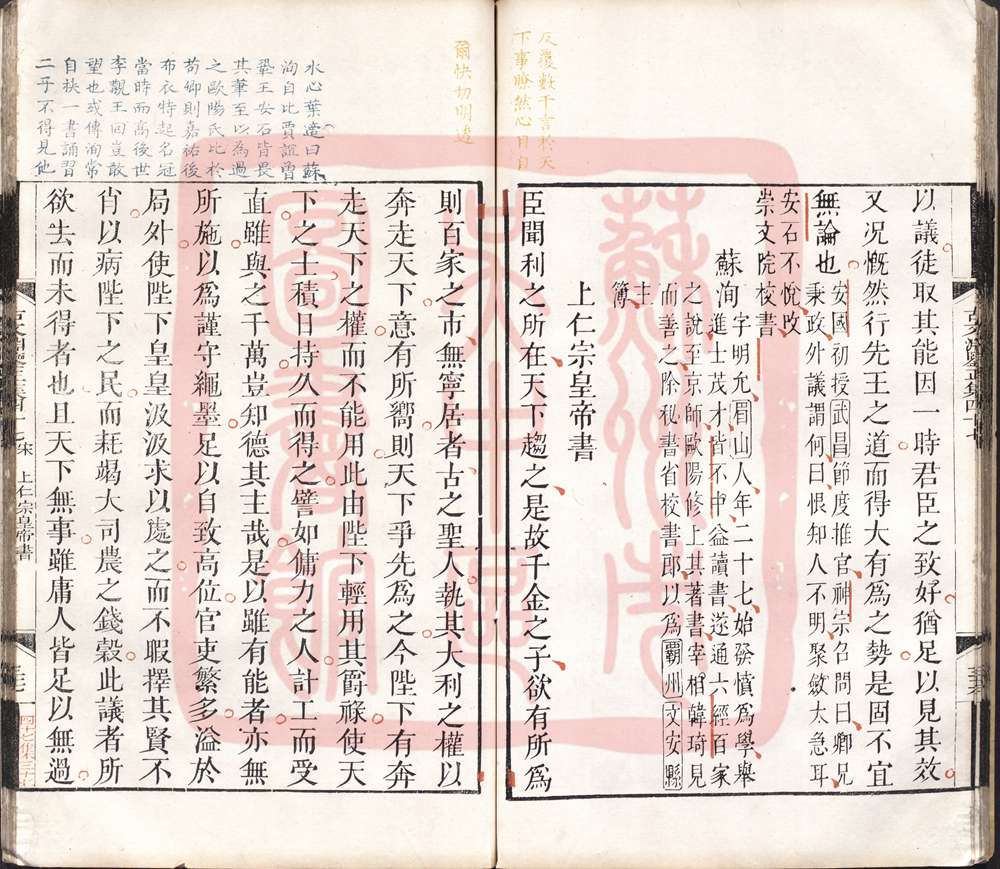 反覆數千言於天
下事瞭然心目自
爾快切明透
以議徒取其能因一時君臣之致好猶足以見其效
又况慨然行先王之道而得大有爲之勢是固不宜
無論也
安國初授武昌節度推官神宗召問曰卿兄
秉政外議謂何曰恨知人不明聚斂太急耳
安石不悅改
崇文院校書
蘇洵字明允眉山人年二十七始發憤爲學舉
進士茂才皆不中益讀書遂通六經百家
之說至京師歐陽修上其著書宰相韓琦見
而善之除秘書省校書郎以爲霸州文安縣
主
簿
上仁宗皇帝書
臣聞利之所在天下趨之是故千金之子欲有所爲
水心葉適曰蘇
洵自比賈誼曾
鞏王安石皆畏
其筆至以為過
之歐陽氏比於
荀卿則嘉祐後
布衣特起名冠
當時而高後世
李覯王回豈敢
望也或傳洵常
自挾一書誦習
二子不得見他
則百家之市無寧居者古之聖人執其大利之權以
奔走天下意有所嚮則天下爭先爲之今陛下有奔
走天下之權而不能用此由陛下輕用其爵祿使天
下之士積日持久而得之譬如傭力之人計工而受
直雖與之千萬豈知德其主哉是以雖有能者亦無
所施以爲謹守繩墨足以自致高位官吏繁多溢於
局外使陛下皇皇汲汲求以處之而不暇擇其賢不
肖以病陛下之民而耗竭大司農之錢穀此議者所
欲去而未得者也且天下無事雖庸人皆足以無過
上仁宗皇帝書